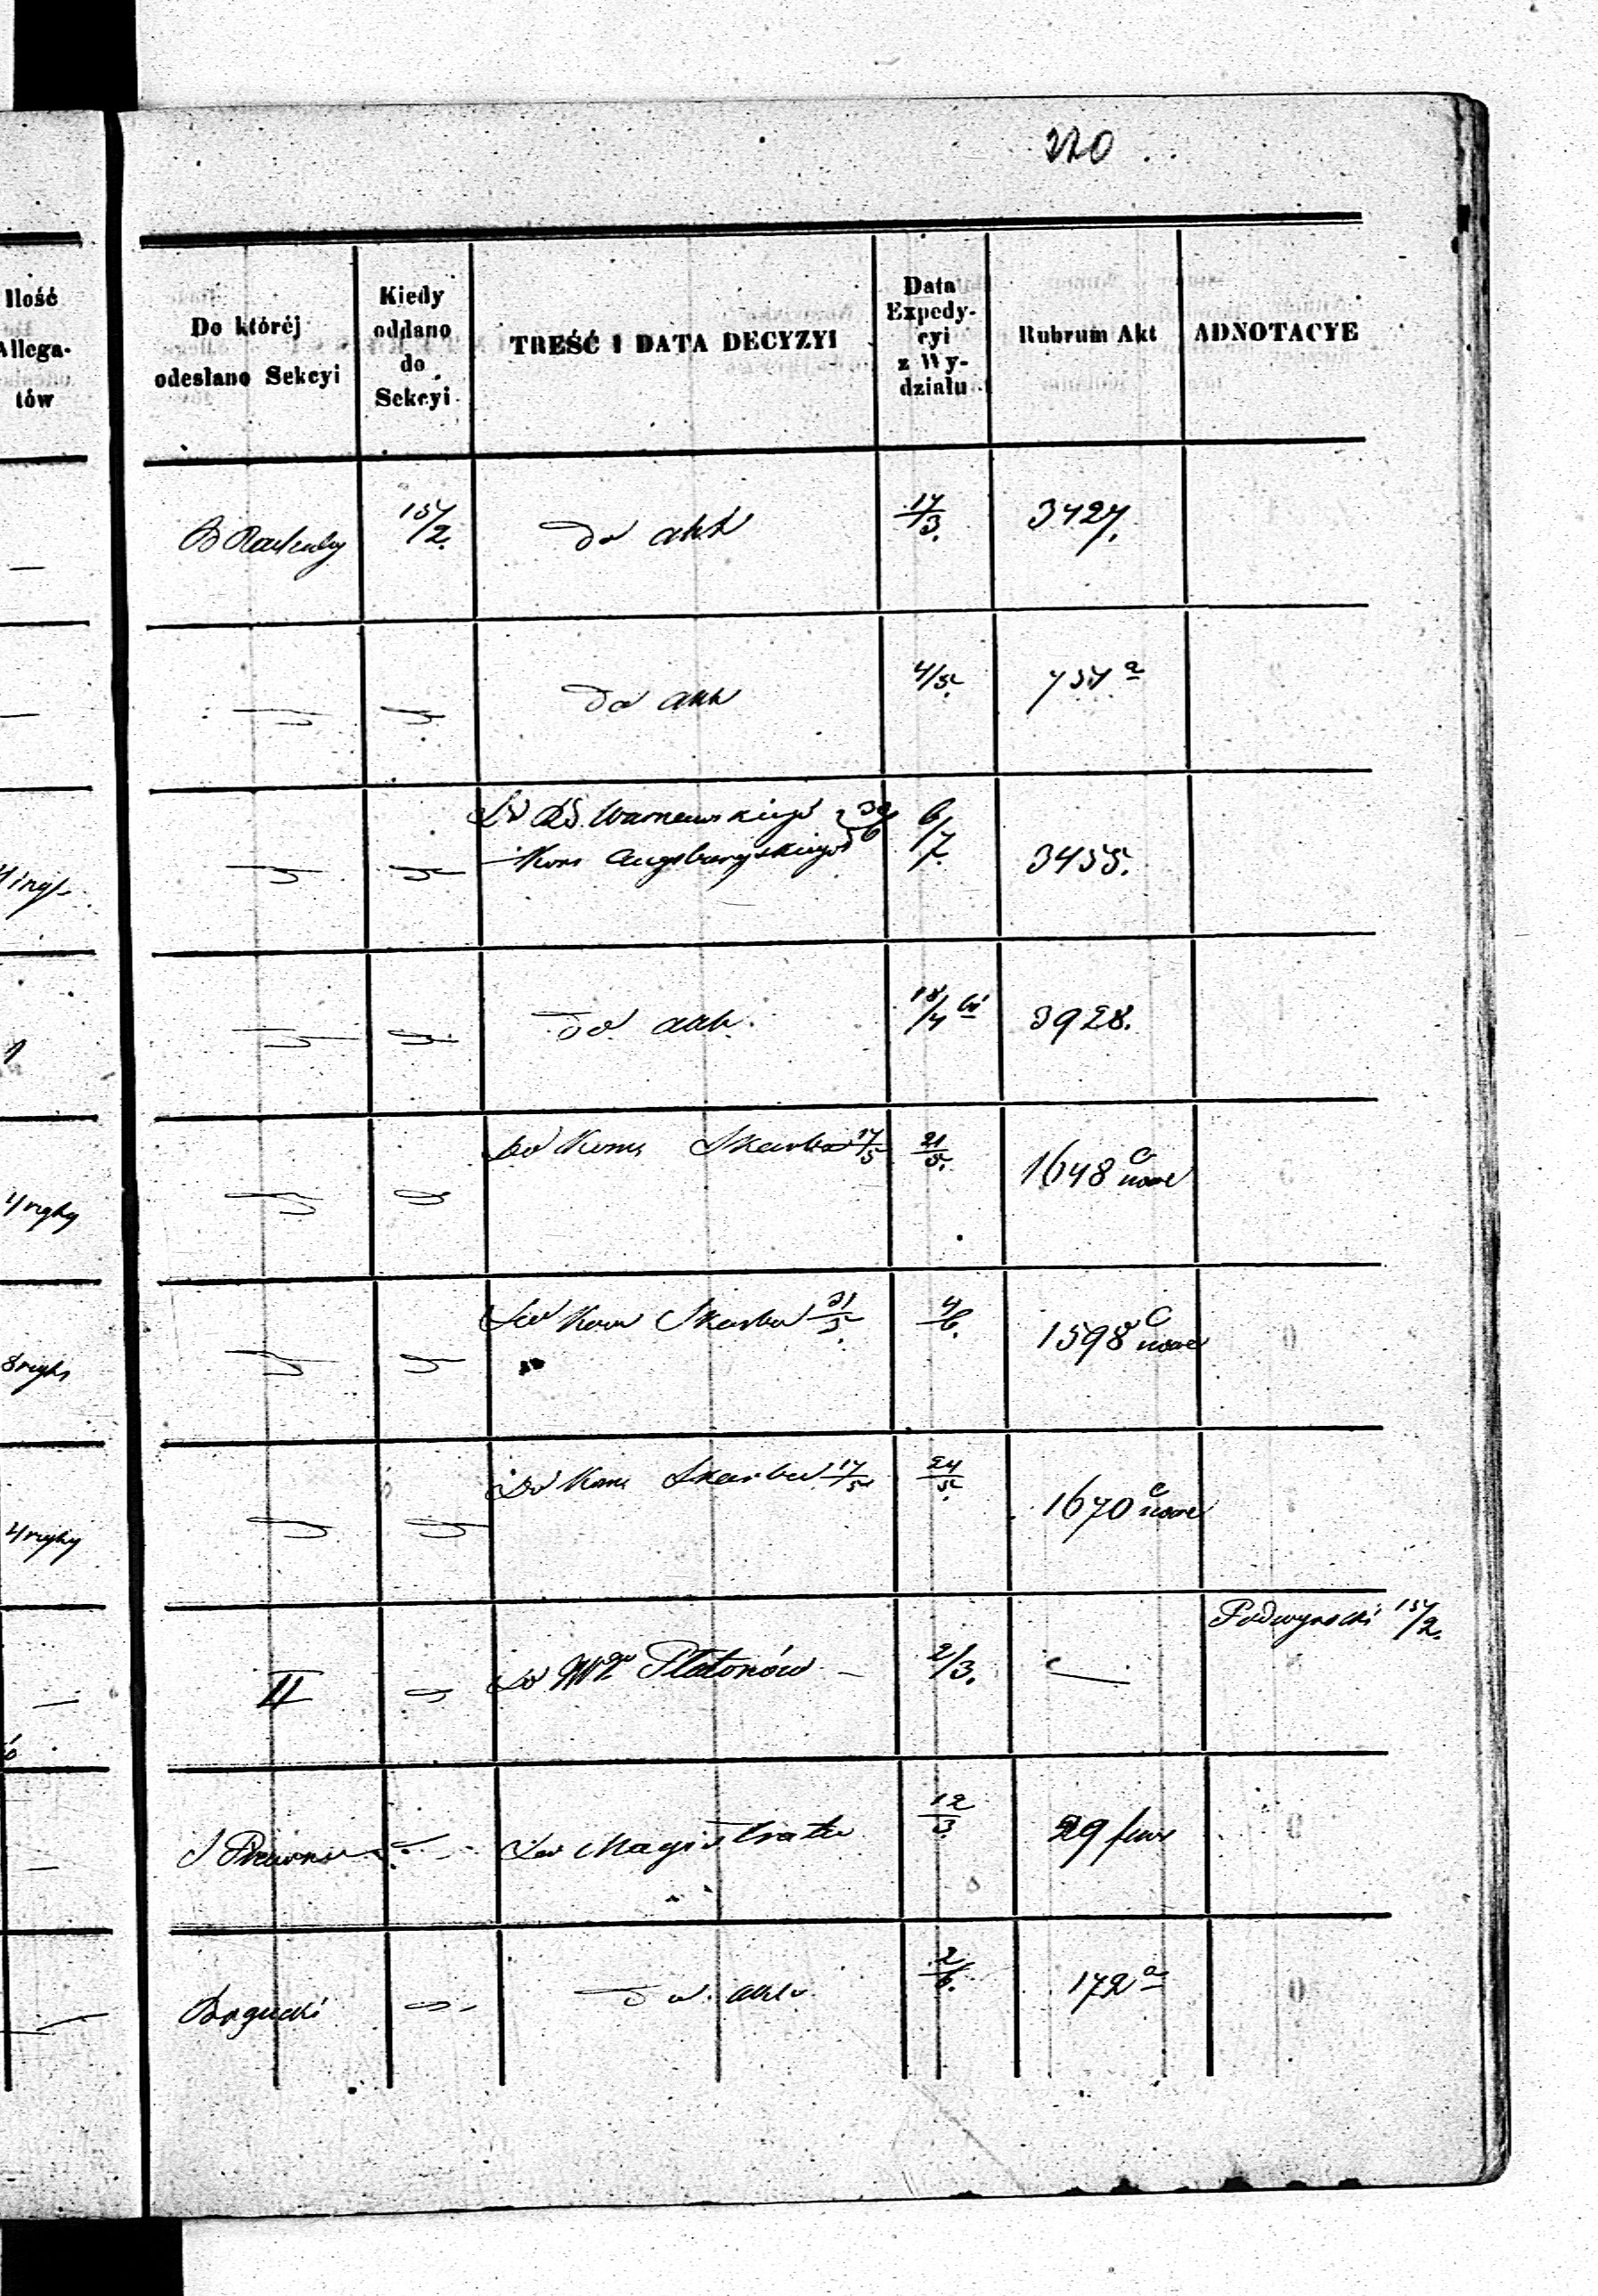 220
Ilość
Allega-
tów
Do któréj
odesłano Sekcyi
Kiedy
oddano
do
Sekcyi
TREŚĆ I DATA DECYZYI
Data
Expedy-
cyi
z Wy-
działu
Rubrum Akt
ADNOTACYE
15/2. do akt 17/3. 3427.
do akt 4/5. 757 a
Do 30/6 6/7.
Kom Augsburgskiego 3455.
do akt. 18/4 3928.
4 Do Kom Skarbu 17/5 21/5. 1648 c nowe
8 Do Kom Skarbu 31/5. 4/6. 1598 c nowe
4 Do Kom Skarbu 17/5 24/5. 1670 c nowe
II Do Platonów 2/3. — Podwysocki 15/2.
Do Magistratu 12/3. 29
Bogucki do akt 2/6. 172 a